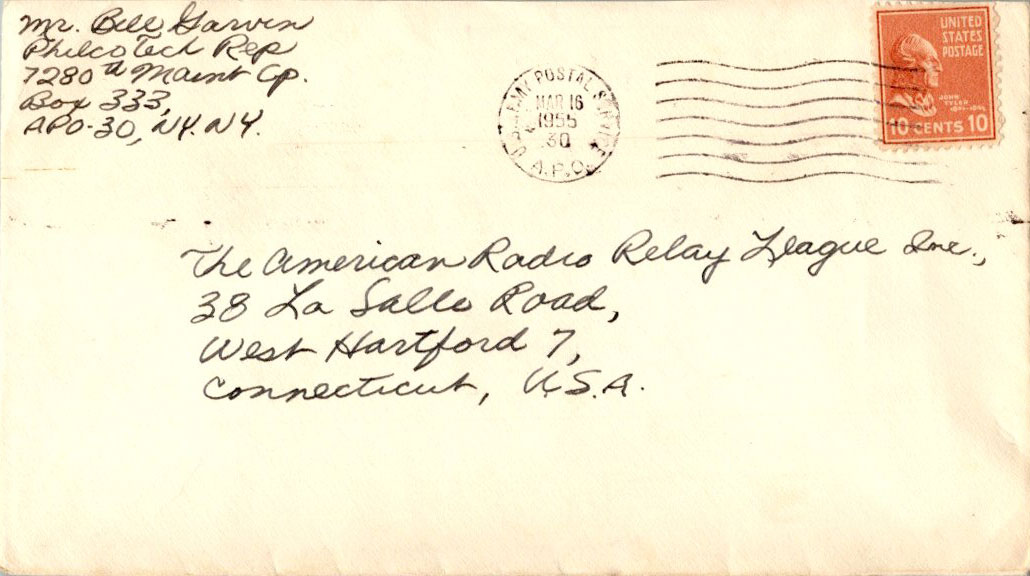 Mr. Bill Garvin
Philco Tech Rep
7280th Maint Gp.
Box 333,
APO-30, N.Y. N.Y.
ARMY POSTAL SERVICE
MAR 16
1955
30
A.P.O.
UNITED
STATES
POSTAGE
JOHN
TYLER
1841-1845
10 CENTS 10
The American Radio Relay League Inc.,
38 La Salle Road,
West Hartford 7,
Connecticut, U.S.A.